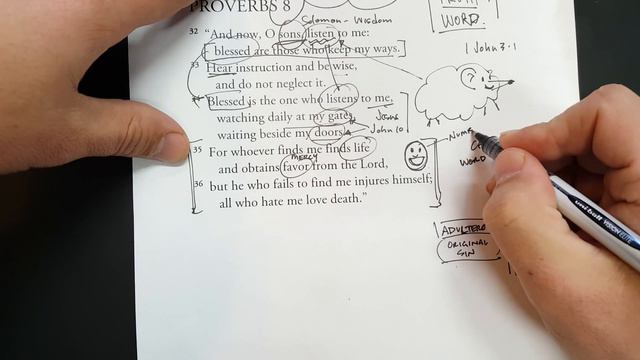 PROVERBS 8
Solomon - Wisdom
WORD.
1 John 3.1
32 "And now, O sons, listen to me:
blessed are those who keep my ways.
33 Hear instruction and be wise,
and do not neglect it.
Blessed is the one who listens to me,
watching daily at my gates,
Jesus
waiting beside my doors.
John 10
35 For whoever finds me finds life
MERCY
and obtains favor from the Lord,
WORD
36 but he who fails to find me injures himself;
all who hate me love death."
ORIGINAL
SIN
uni-ball VISION ELITE